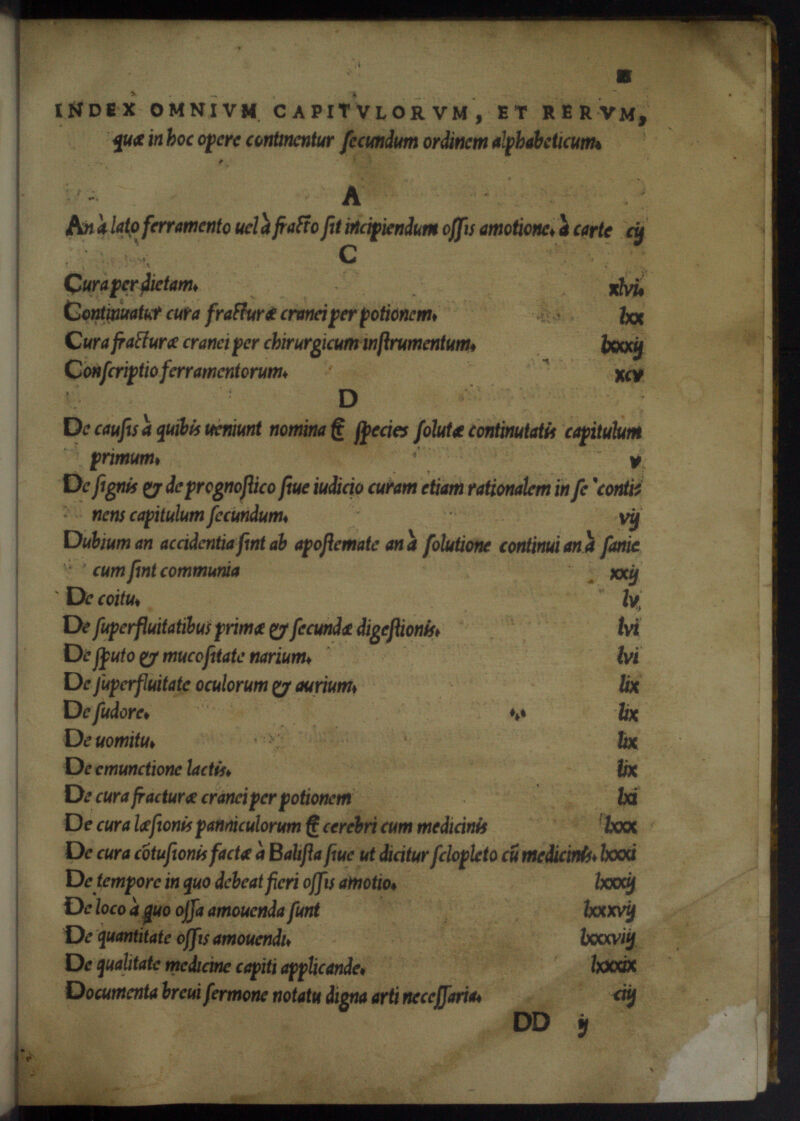 II
INDEX OMNIVM CAPITVLORVM, ET RERVM,
quæ in hoc opere continentur ſecundum ordinem alphabeticum.
A
An à lato ferramento uel à fracto ſit incipiendum oſſis amotione. à carte cij
C
Cura per dietam. xlvi.
Continuatur cura fracturæ cranei per potionem. lxx
Cura fracturæ cranei per chirurgicum inſtrumentum. lxxxij
Conſcriptio ferramentorum. xcv
D
De cauſis à quibis ueniunt nomina & ſpecies ſolutæ continutatis capitulum
primum. v
De ſignis & de prognoſtico ſiue iudicio curam etiam rationalem in ſe contis
nens capitulum ſecundum. vij
Dubium an accidentia ſint ab apoſtemate an à ſolutione continui an à ſanie
cum ſint communia xxij
De coitu. lv
De ſuperfluitatibus primæ & ſecundæ digeſtionis. lvi
De ſputo & mucoſitate narium. lvi
De ſuperfluitate oculorum & aurium. lix
De ſudore. lix
De uomitu. lix
De emunctione lactis. lix
De cura fracturæ cranei per potionem lxi
De cura læſionis panniculorum & cerebri cum medicinis lxxx
De cura cõtuſionis factæ à Baliſta ſiue ut dicitur ſclopleto cũ medicinis. lxxxi
De tempore in quo debeat fieri oſſis amotio. lxxxij
De loco à quo oſſa amouenda ſunt lxxxvij
De quantitate oſſis amouendi. lxxxviij
De qualitate medicine capiti applicande. lxxxix
Documenta breui ſermone notatu digna arti neceſſaria. ciij
DD ij